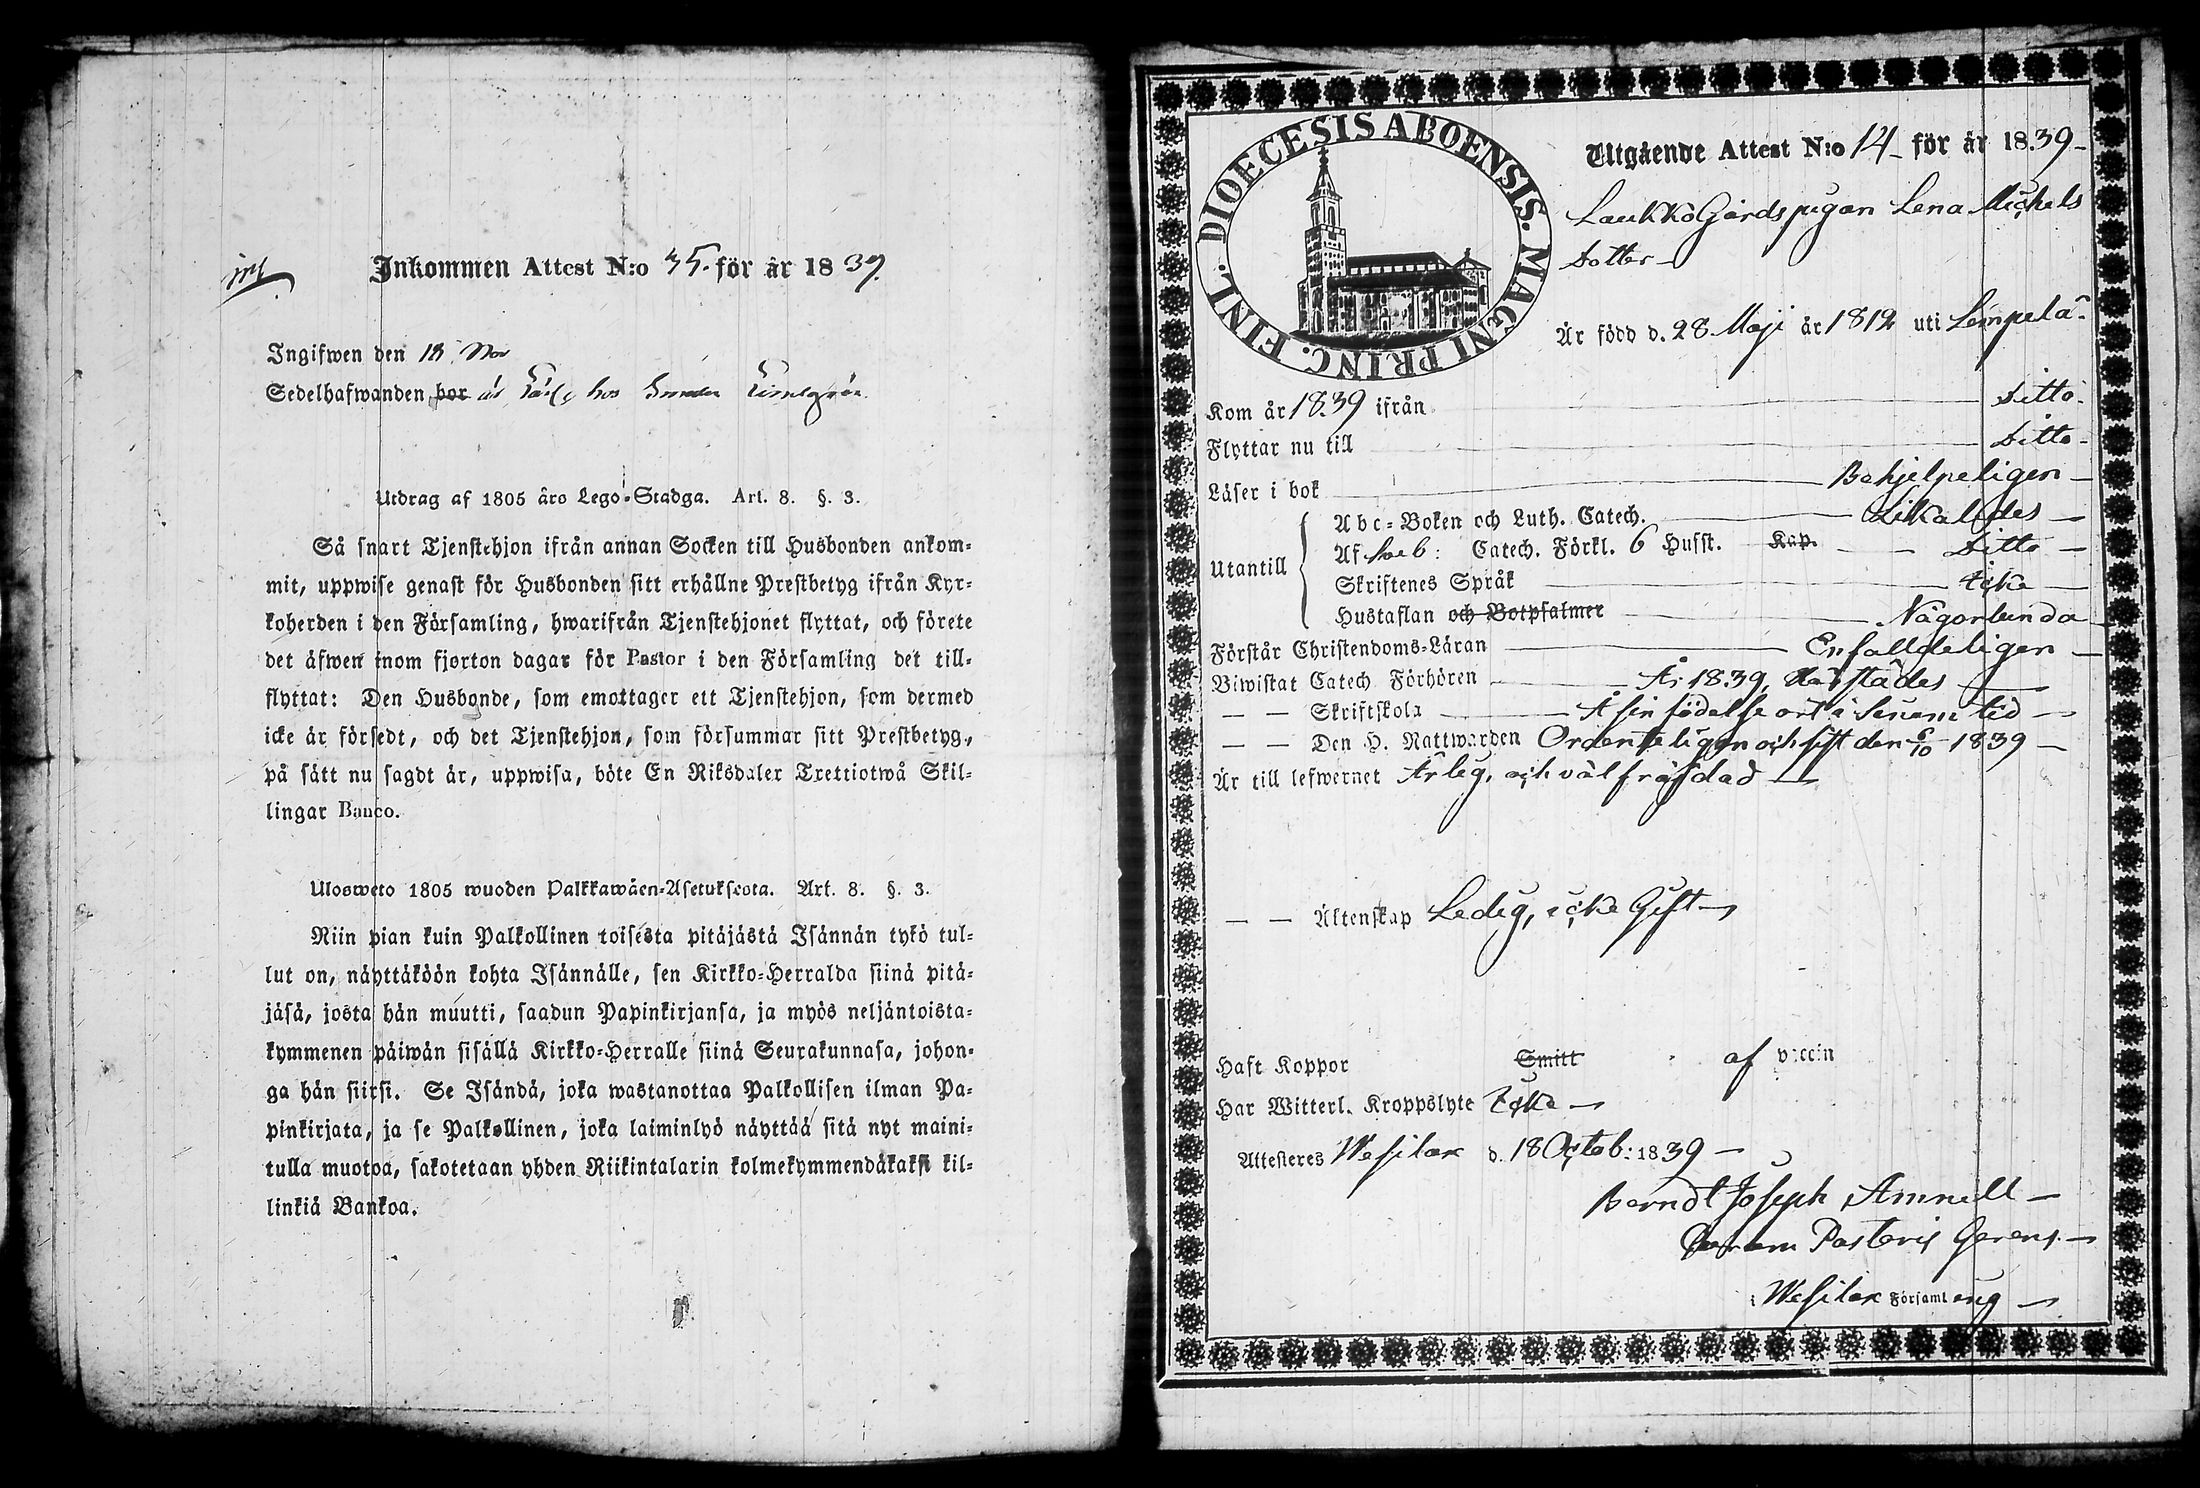 Inkommen Attest N:o 35. för år 1839.
Ingifwen den 18 Nov
Sedelhafwanden bor hos
Utdrag af 1805 års Lego-Stadga. Art. 8. §. 3.
Så snart Tjenstehjon ifrån annan Socken till Husbonden ankom-
mit, uppwise genast för Husbonden sitt erhållne Prestbetyg ifrån Kyr-
koherden i den Församling, hwarifrån Tjenstehjonet flyttat, och förete
det äfwen inom fjorton dagar för Pastor i den Församling det till-
flyttat: Den Husbonde, som emottager ett Tjenstehjon, som dermed
icke är försedt, och det Tjenstehjon, som försummar sitt Prestbetyg,
på sätt nu sagdt är, uppwisa, böte En Riksdaler Trettiotwå Skil-
lingar Banco.
Ulosweto 1805 wuoden Palkkawäen-Asetuksesta. Art. 8. §. 3.
Niin pian kuin Palkollinen toisesta pitäjästä Isännän tykö tul-
lut on, näyttäköön kohta Isännälle, sen Kirkko-Herralda siinä pitä-
jäsä, josta hän muutti, saadun Papinkirjansa, ja myös neljäntoista-
kymmenen päiwän sisällä Kirkko-Herralle siinä Seurakunnasa, johon-
ga hän siirsi. Se Isändä, joka wastanottaa Palkollisen ilman Pa-
pinkirjata, ja se Palkollinen, joka laiminlyö näyttää sitä nyt maini-
tulla muotoa, sakotetaan yhden Riikintalarin kolmekymmendäkaksi kil-
linkiä Bankoa.
DIOECESIS ABOENSIS. MAGNI PRINC. FINL.
Utgående Attest N:o 14 för år 1839
Laukko Gårds pigan Lena Michels
dotter
Är född d. 28 Maji år 1812 uti Lempelä
Kom år 1839 ifrån ditto
Flyttar nu till ditto
Läser i bok Behjelpeligen
Utantill
Abc-Boken och Luth. Catech. Likaledes
Af Sveb: Catech. Förkl. 6 Hufst. Kap. ditto
Skriftenes Språk icke
Hustaflan och Botpsalmer Någorlunda
Förstår Christendoms-Läran Enfalldeligen
Biwistat Catech Förhören År 1839, Härstädes
— — Skriftskola Å sin födelse ort i senom tid
— — Den H. Nattwarden Ordenteligen och sist den 6/10 1839
Är till lefwernet Ärlig, och välfräjdad
— — Äktenskap Ledig, icke Gift
Haft Koppor Smitt af vaccin
Har Witterl. Kroppslyte Icke
Attesteres Wesilax d. 18 Octob: 1839
Berndt Joseph Amnell
Curam Pastoris Gerens.
i Wesilax Församling